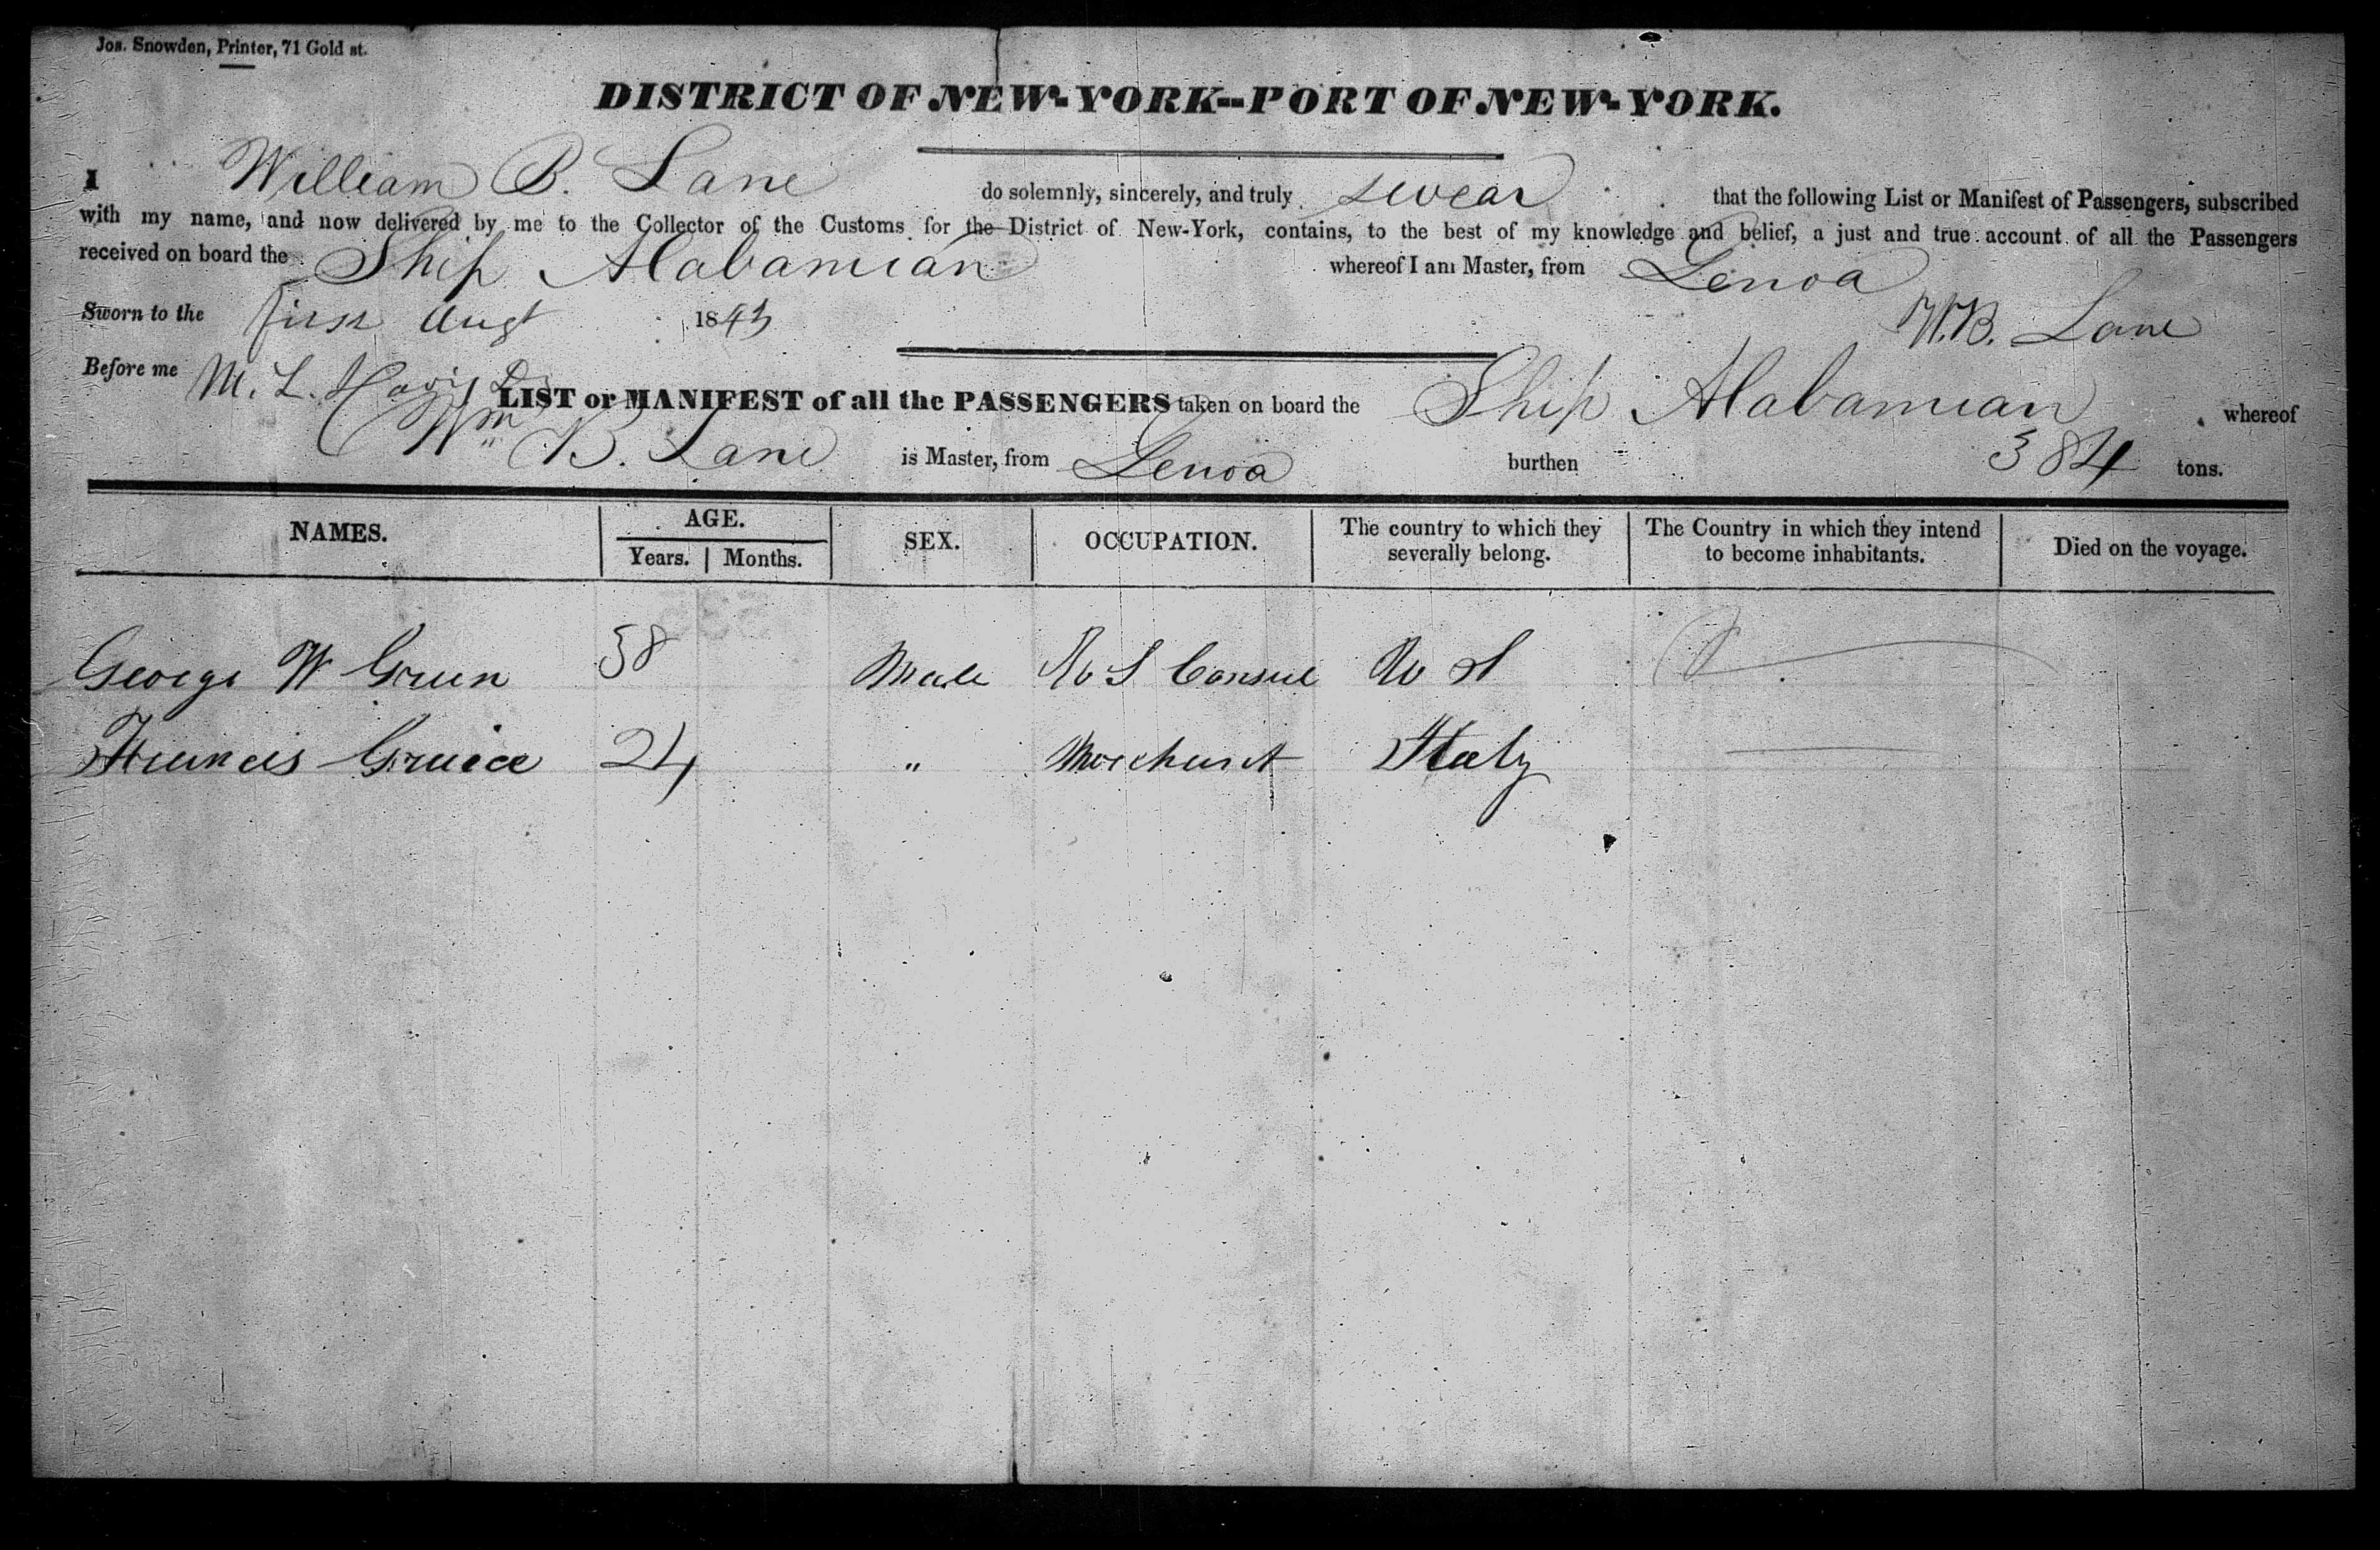 Jos. Snowden, Printer, 71 Gold st.
DISTRICT OF NEW-YORK--PORT OF NEW-YORK.
I William B. Lane do solemnly, sincerely, and truly swear that the following List or Manifest of Passengers, subscribed
with my name, and now delivered by me to the Collector of the Customs for the District of New-York, contains, to the best of my knowledge and belief, a just and true account of all the Passengers
received on board the Ship Alabamian whereof I am Master, from Genoa
Sworn to the first Augt 1843 W.B. Lane
Before me M. L.
LIST or MANIFEST of all the PASSENGERS taken on board the Ship Alabamian whereof
Wm B. Lane is Master, from Genoa burthen 384 tons.
NAMES. AGE. SEX. OCCUPATION. The country to which they severally belong. The Country in which they intend to become inhabitants. Died on the voyage.
Years. Months.
George W Green 38 Male U S Consul U S
Francis 24 " Merchant Italy